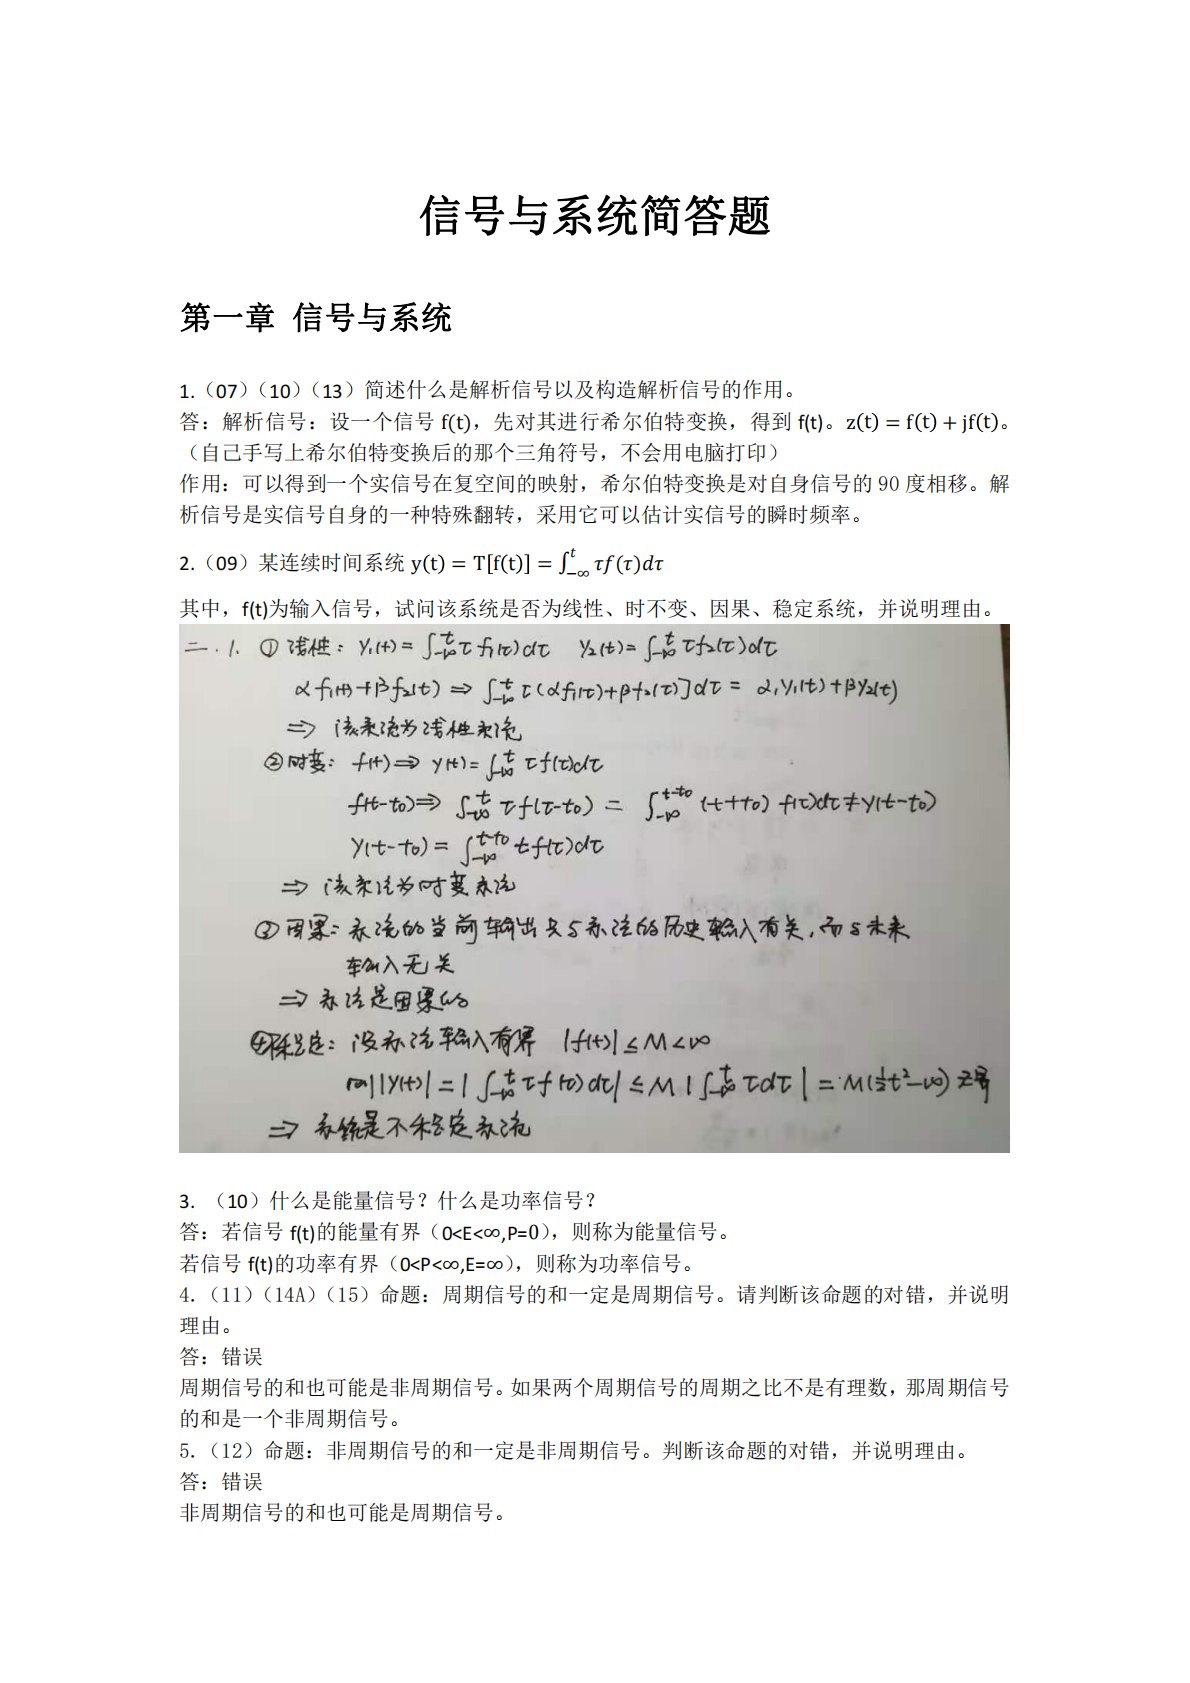 信号与系统简答题
第一章 信号与系统
1.（07）（10）（13）简述什么是解析信号以及构造解析信号的作用。
答：解析信号：设一个信号 f(t)，先对其进行希尔伯特变换，得到 f(t)。z(t) = f(t) + jf(t)。
（自己手写上希尔伯特变换后的那个三角符号，不会用电脑打印）
作用：可以得到一个实信号在复空间的映射，希尔伯特变换是对自身信号的 90 度相移。解
析信号是实信号自身的一种特殊翻转，采用它可以估计实信号的瞬时频率。
2.（09）某连续时间系统 y(t) = T[f(t)] = ∫_{-∞}^{t} τf(τ)dτ
其中，f(t)为输入信号，试问该系统是否为线性、时不变、因果、稳定系统，并说明理由。
二.1. ①线性：y₁(t)=∫_{-∞}^{t} τf₁(τ)dτ y₂(t)=∫_{-∞}^{t} τf₂(τ)dτ
αf₁(t)+βf₂(t) ⇒ ∫_{-∞}^{t} τ(αf₁(τ)+βf₂(τ)]dτ = α,y₁(t)+βy₂(t)
⇒ 该系统为线性系统
②时变：f(t)⇒ y(t)=∫_{-∞}^{t} τf(τ)dτ
f(t-t₀)⇒ ∫_{-∞}^{t} τf(τ-t₀) = ∫_{-∞}^{t-t₀} (t+t₀) f(τ)dτ≠y(t-t₀)
y(t-t₀)= ∫_{-∞}^{t-t₀} tf(τ)dτ
⇒ 该系统为时变系统
③因果：系统的当前输出只与系统的历史输入有关，而与未来
输入无关
⇒ 系统是因果的
④稳定：设系统输入有界 |f(t)|≤M<∞
则|y(t)|=|∫_{-∞}^{t} τf(τ)dτ|≤M|∫_{-∞}^{t} τdτ|=M(½t²-∞) 无界
⇒ 系统是不稳定系统
3. （10）什么是能量信号？什么是功率信号？
答：若信号 f(t)的能量有界（0<E<∞,P=0），则称为能量信号。
若信号 f(t)的功率有界（0<P<∞,E=∞），则称为功率信号。
4.（11）（14A）（15）命题：周期信号的和一定是周期信号。请判断该命题的对错，并说明
理由。
答：错误
周期信号的和也可能是非周期信号。如果两个周期信号的周期之比不是有理数，那周期信号
的和是一个非周期信号。
5.（12）命题：非周期信号的和一定是非周期信号。判断该命题的对错，并说明理由。
答：错误
非周期信号的和也可能是周期信号。